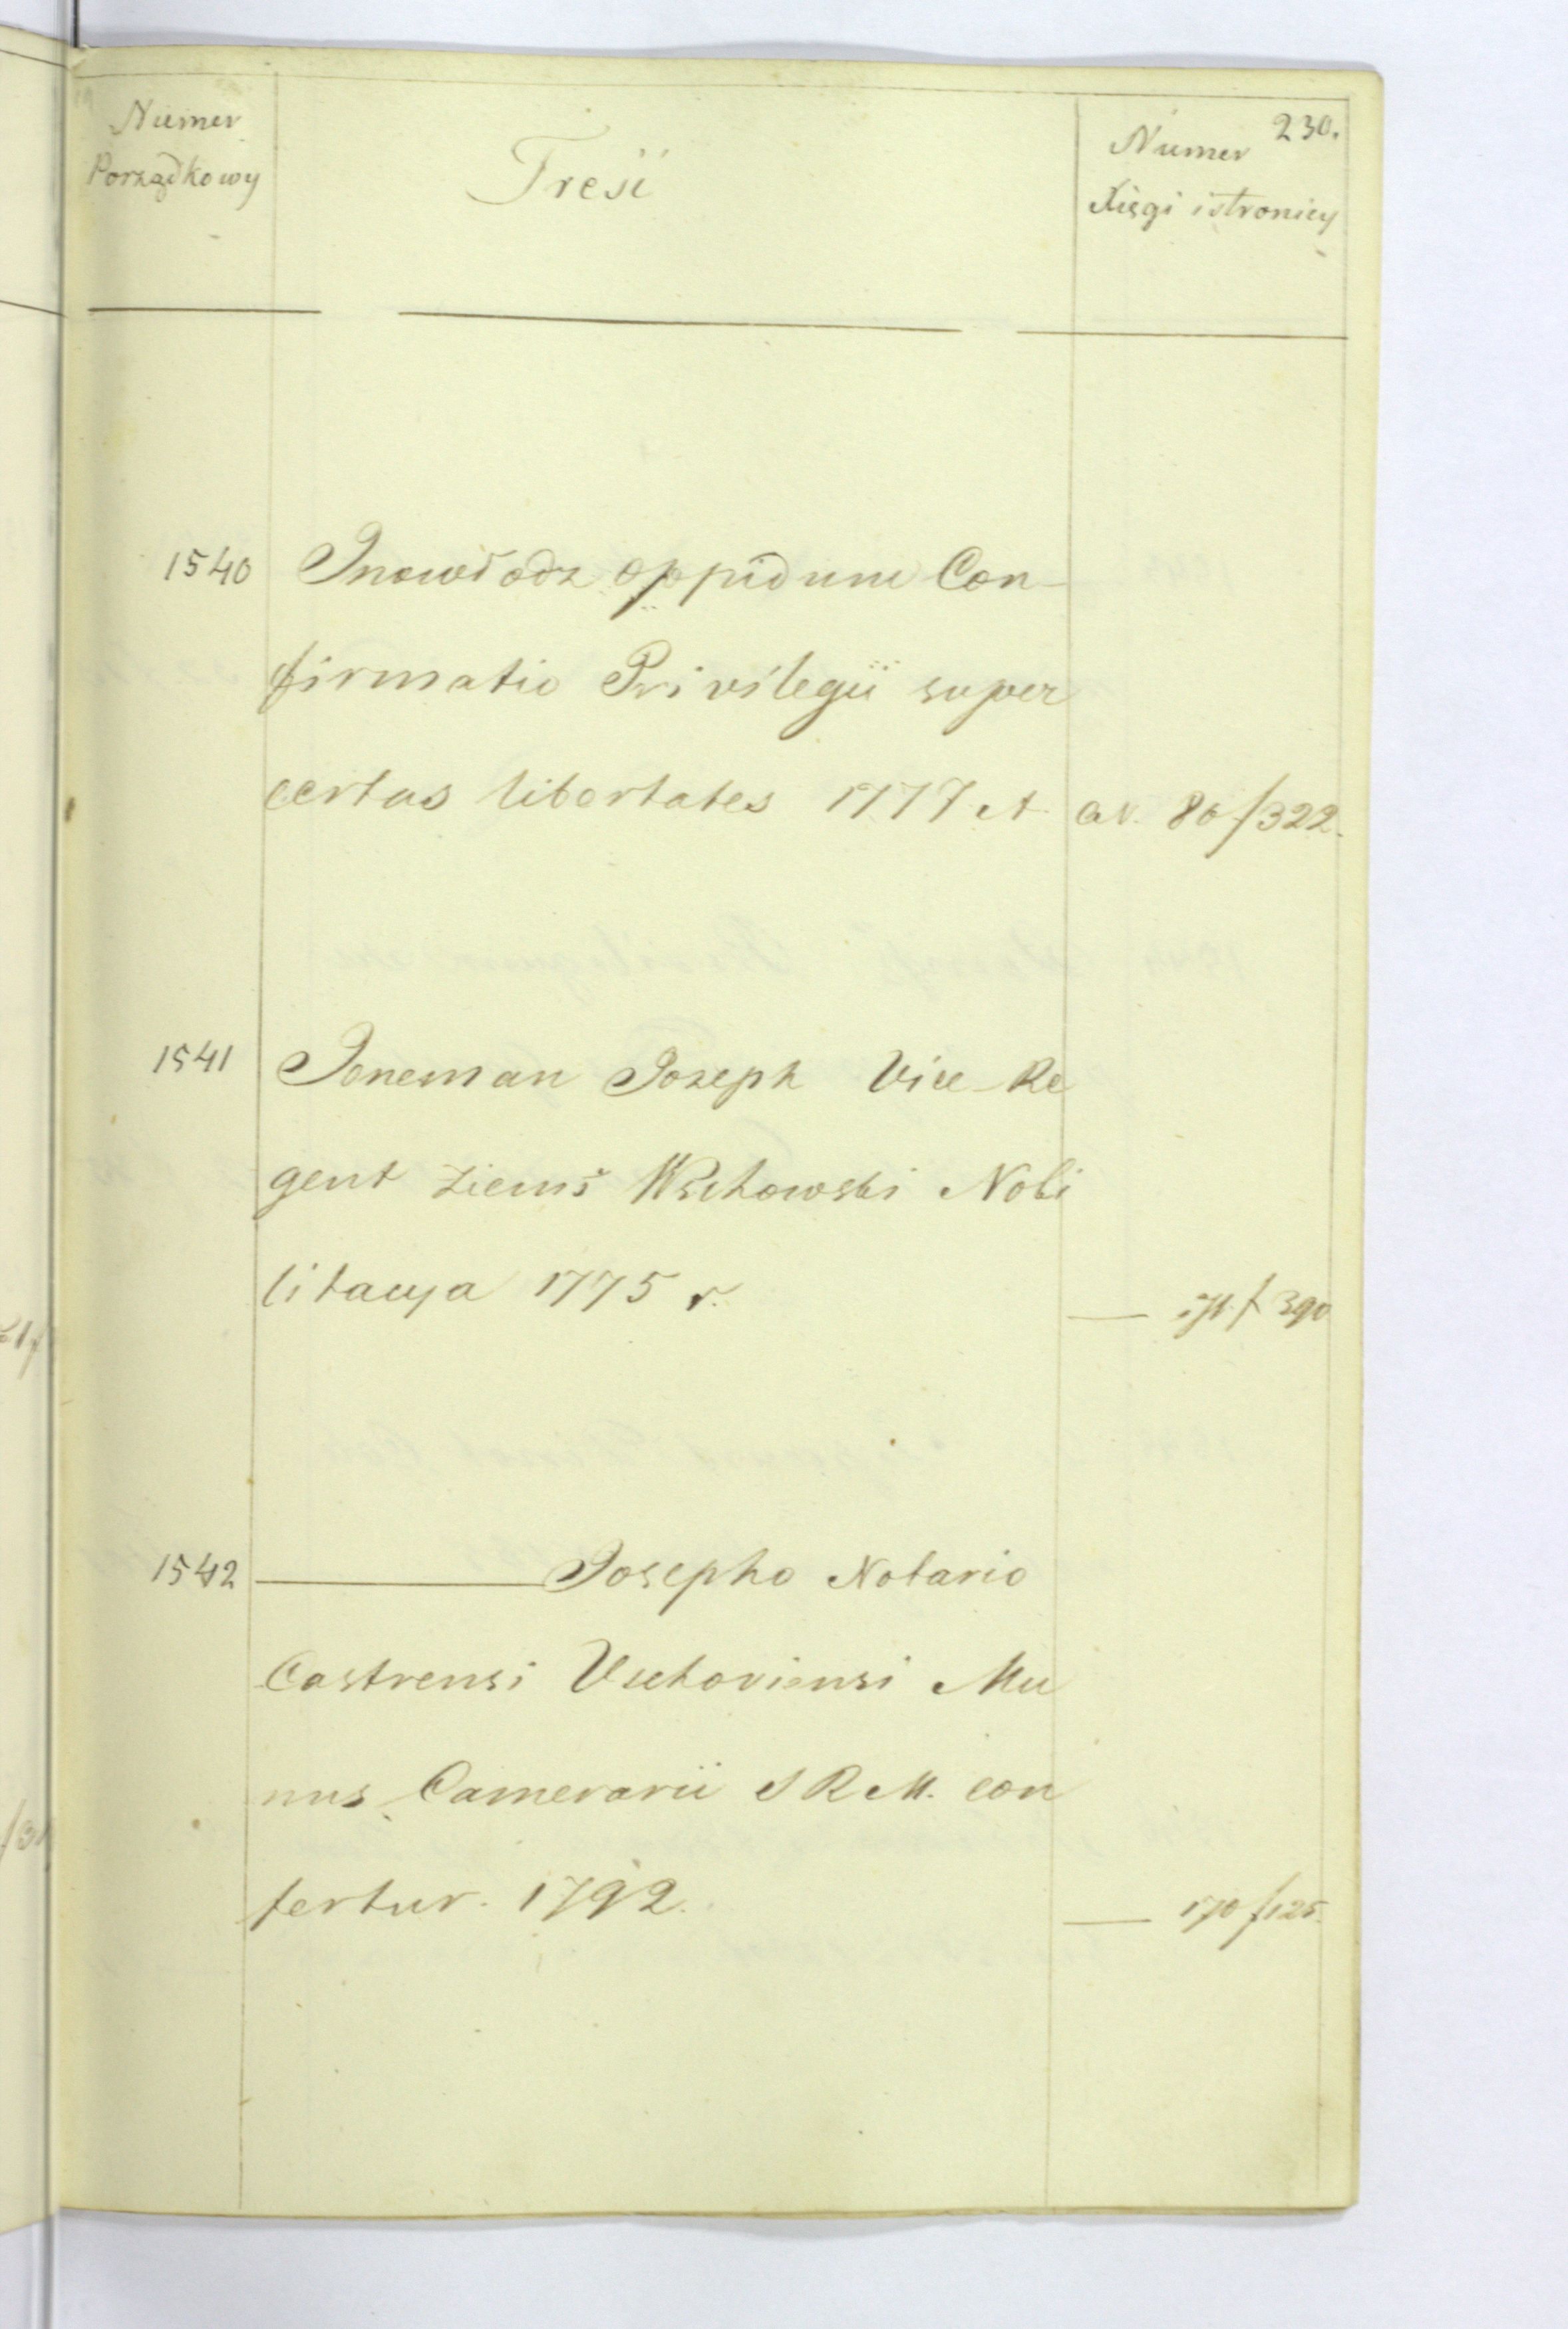 230.
Numer
Porządkowy
Treść
Numer
Xięgi i stronicy
1540 Inowłodz oppidum Con-
firmatio Privilegii super
certas libertates 1777 A N. 86 f 322.
1541 Joneman Jozeph Vice-Re
gent ziems Wschowski Nobi
litacya 1775 r. — 171. f 390
1542 — Josepho Notario
Castrensi Vschoviensi Mu
nus Camerarii S R M. con
fertur. 1792. — 170 f 125.